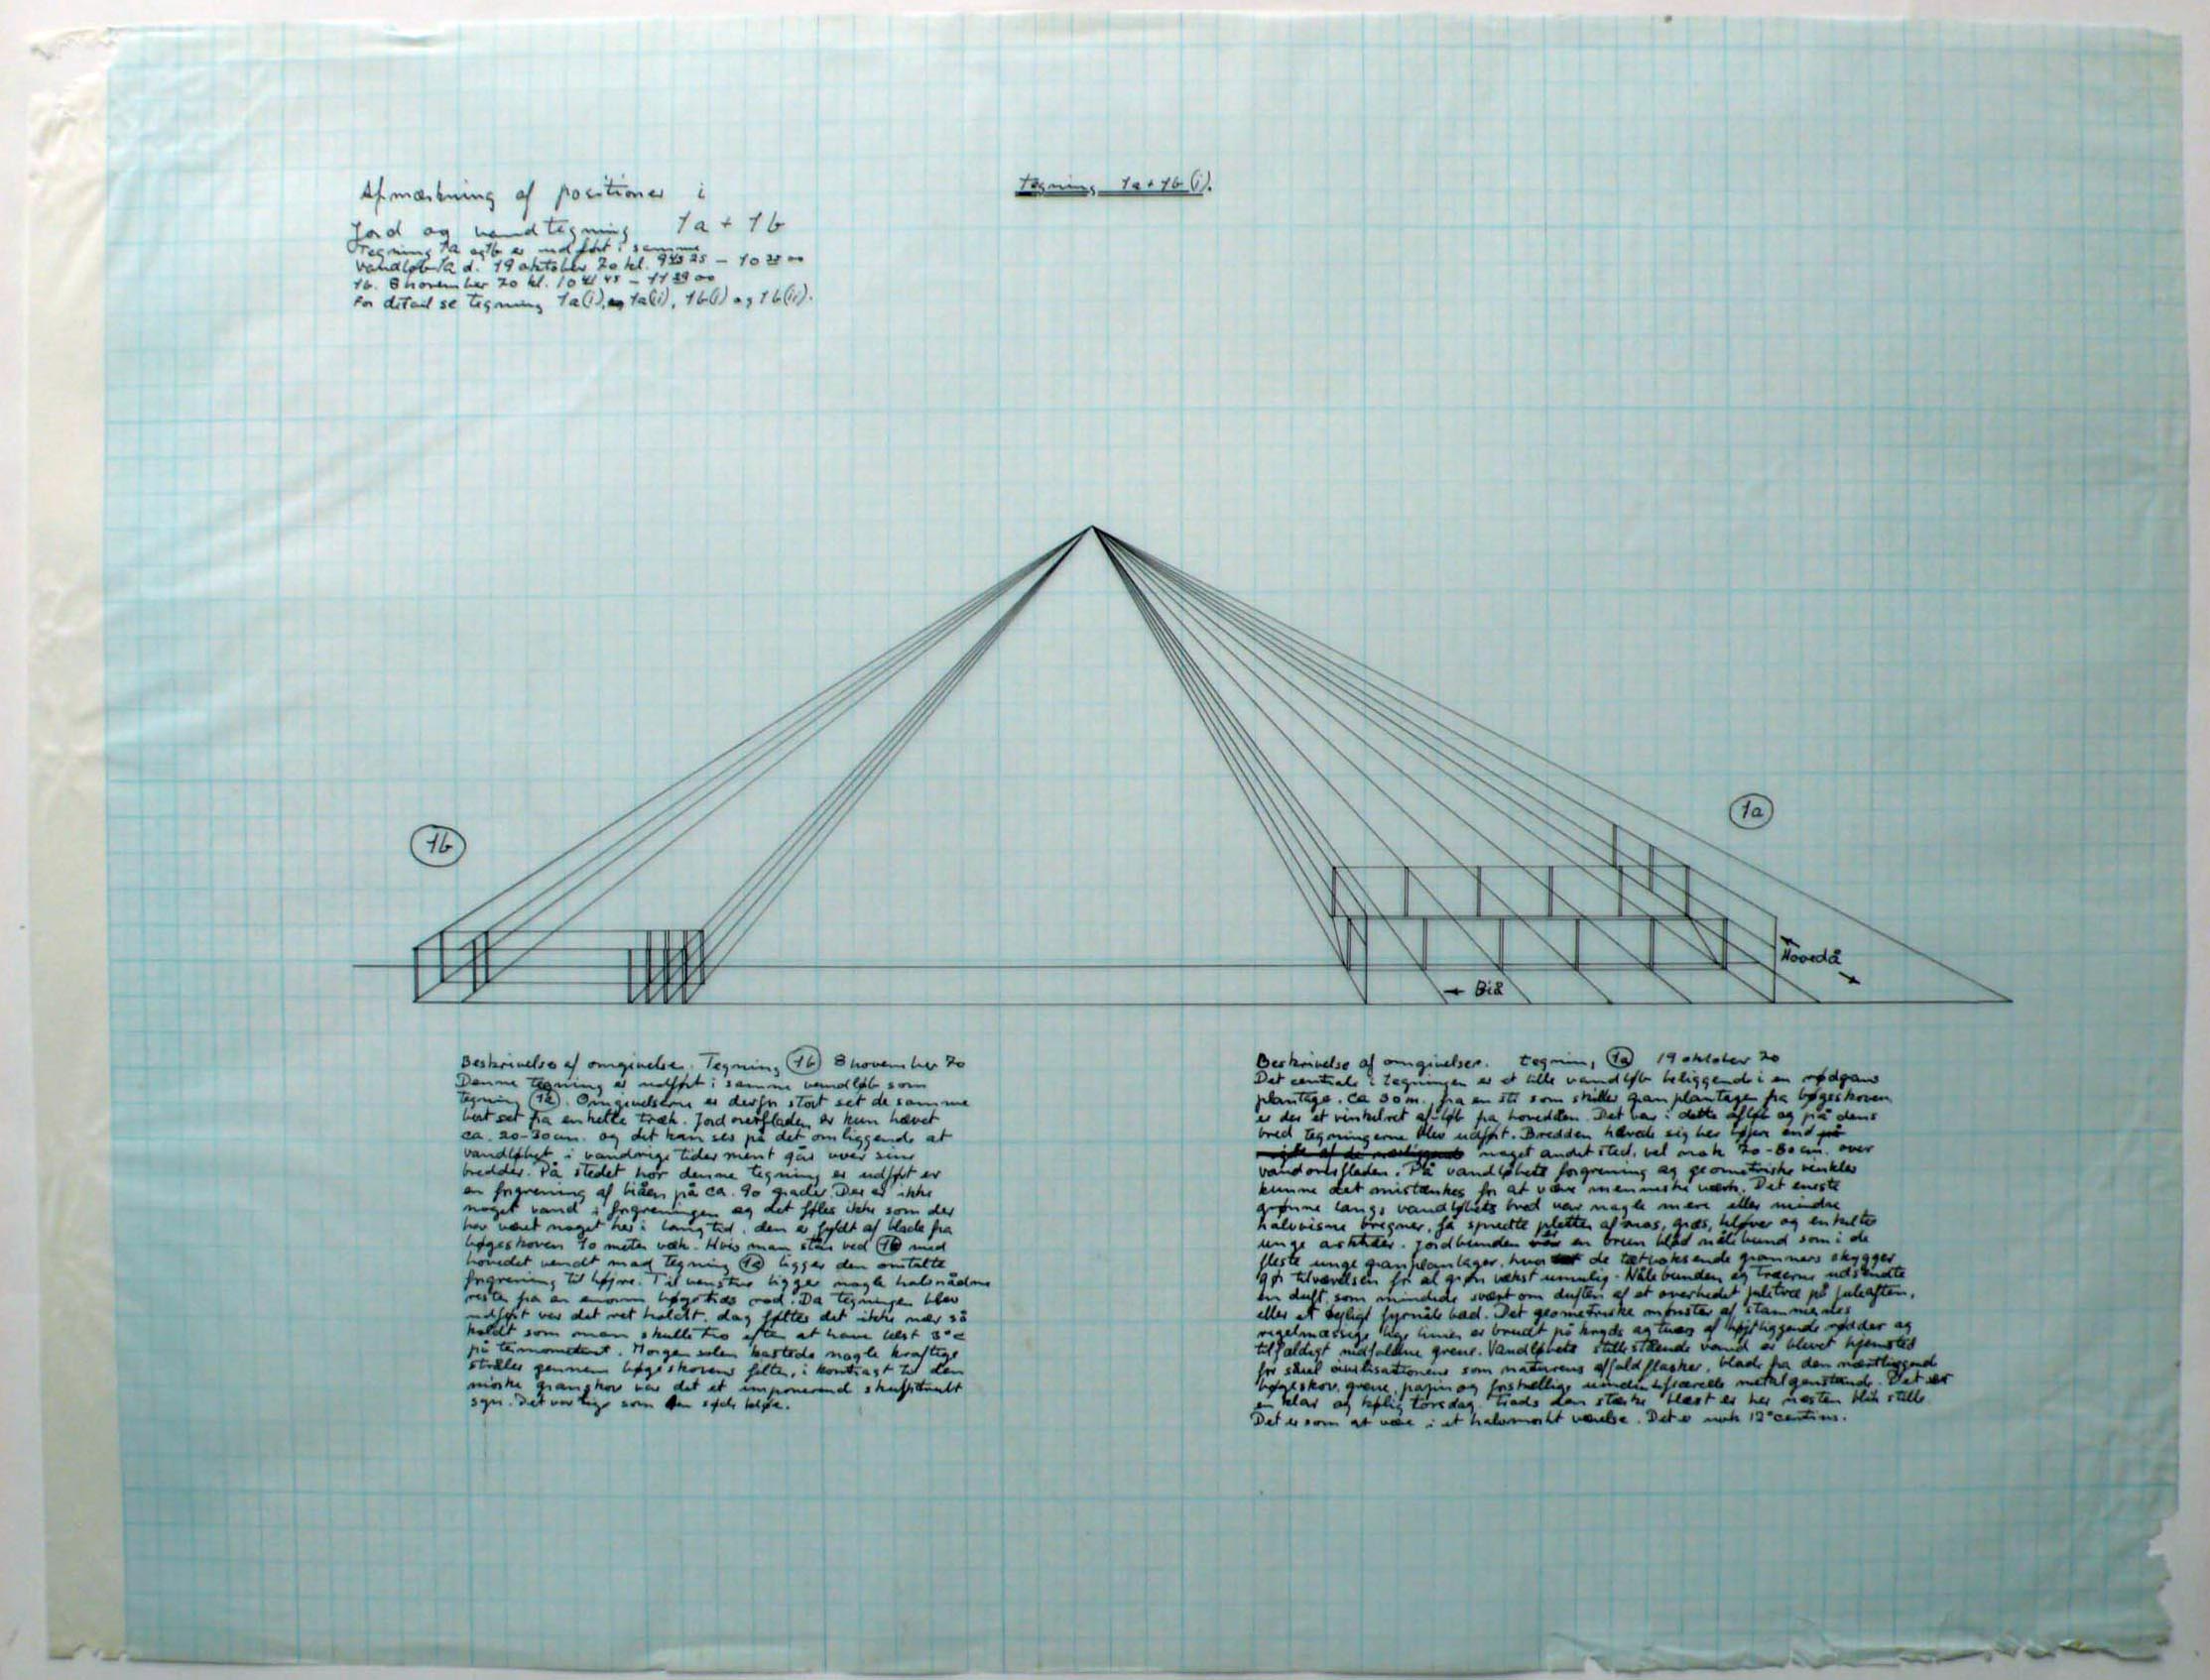 Afmærkning af positioner i
Jord og vandtegning 1a + 1b
Tegning 1a og 1b er udført i samme
vandløb 1a d. 19 oktober 70 kl. 9 45 25 – 10 22 00
1b. 8 november 70 kl. 10 41 45 – 11 29 00
For detail se tegning 1a(i), og 1a(ii), 1b(i) og 1b(ii).
tegning 1a + 1b (i).
1b
1a
Hovedå
← Biå
Beskrivelse af omgivelser. Tegning 1b 8 november 70
Denne tegning er udført i samme vandløb som
tegning 1a. Omgivelserne er derfor stort set de samme
bort set fra enkelte træk. Jordoverfladen er kun hævet
ca. 20-30 cm. og det kan ses på det omliggende at
vandløbet i vandrige tider ment går over sine
bredder. På stedet hvor denne tegning er udført er
en forgrening af biåen på ca. 90 grader. Der er ikke
noget vand i forgreningen og det føles ikke som der
har været noget her i lang tid, den er fyldt af blade fra
bøgeskoven 10 meter væk. Hvis man står ved 1b med
hovedet vendt mod tegning 1a ligger den omtalte
forgrening til højre. Til venstre ligger nogle halvrådne
rester fra en enorm bøgetræs rod. Da tegningen blev
udført var det ret koldt, dog føltes det ikke nær så
koldt som man skulle tro efter at have læst 3°C
på termometeret. Morgensolen kastede nogle kraftige
stråler gennem bøgeskovens felter, i kontrast til den
mørke granskov var det et imponerende skuespil
syn. Det var lige som den søde kløe.
Beskrivelse af omgivelser. tegning 1a 19 oktober 70
Det centrale i tegningen er et lille vandløb beliggende i en rødgran
plantage. Ca 30 m. fra en sti som skiller granplantagen fra bøgeskoven
er der et vinkelret afløb fra hovedåen. Det var i dette afløb og på dens
bred tegningerne blev udført. Bredden hæved sig her højere end
noget andet sted, vel nok 70-80 cm. over
vandoverfladen. På vandløbets forgrening og geometriske vinkler
kunne det mistænkes for at være menneske værk. Det eneste
grønne langs vandløbets bred var nogle mere eller mindre
halvvisne bregner, få spredte pletter af mos, græs, kløver og enkelte
unge asketræer. Jordbunden er en brun blød nålebund som i de
fleste unge granplantager, hvor de tætvoksende graners skygger
gør tilværelsen for al grøn vækst umulig. Nålebunden og træerne udsendte
en duft, som mindede svært om duften af et overhedet juletræ på juleaften,
eller et dejligt fyrnåls bad. Det geometriske mønster af stammernes
regelmæssige lige linier er brudt på kryds og tværs af højtliggende rødder og
tilfældigt nedfaldne grene. Vandløbets stillestående vand er blevet hjemsted
for såvel civilisationens som naturens affald flasker, blade fra den nærtliggende
bøgeskov, grene, papir og forskellige metalgenstande. Det er
en klar og kølig torsdag. Trods den stærke blæst er her næsten blik stille.
Det er som at være i et halvmørkt værelse. Det er nok 12° centius.